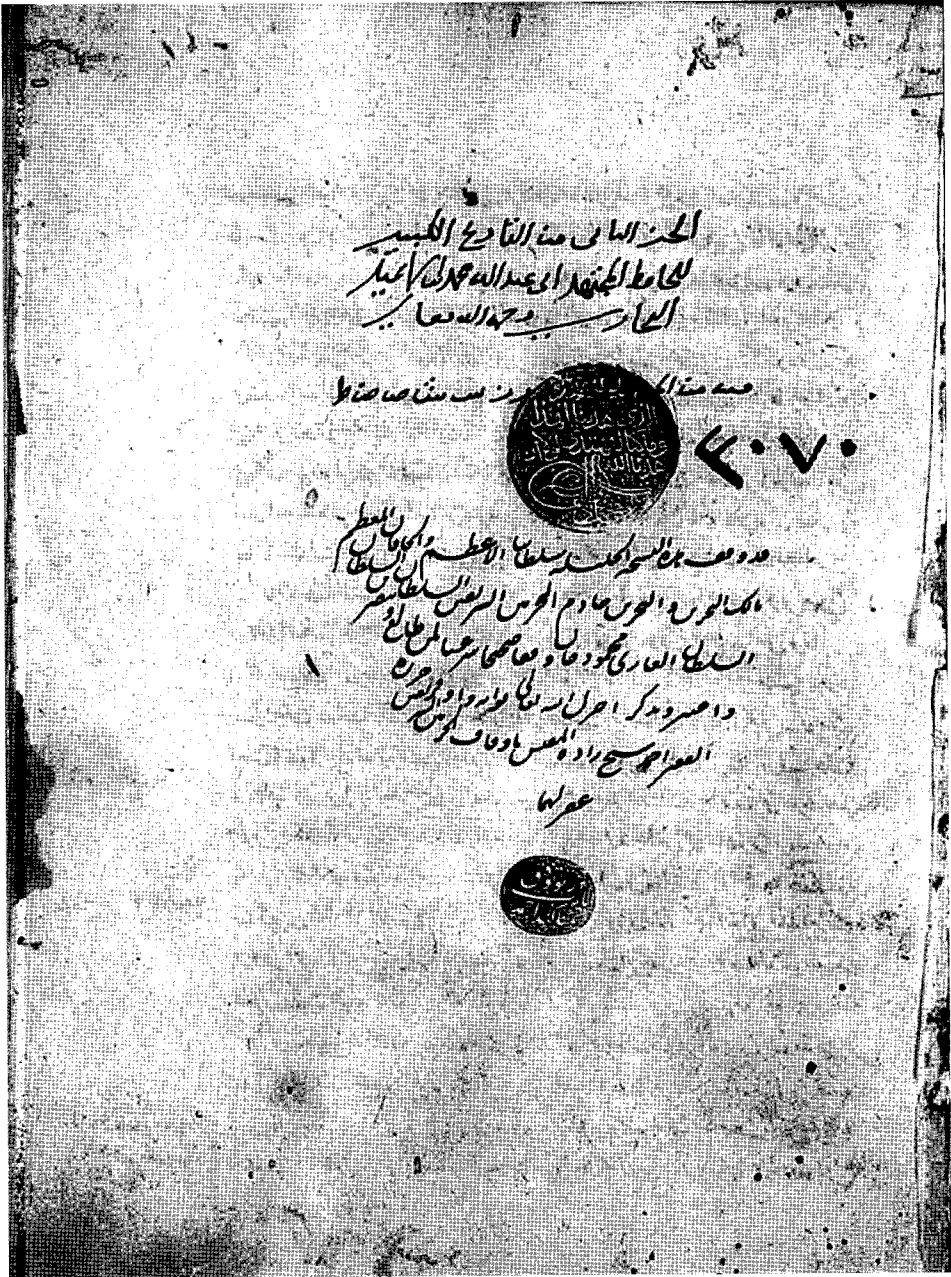 الجزء الثاني من التاريخ الكبير
للحافظ المجتهد ابى عبد الله محمد بن اسمعيل
البخاري رحمه الله تعالى
٣٠٧٠
قد وقف هذه النسخة الجليلة سلطاننا الاعظم والخاقان المعظم
مالك البرين والبحرين خادم الحرمين الشريفين السلطان بن السلطان
السلطان الغازى محمود خان وقفا صحيحا شرعيا لمن طالع
وتبصر واعتبر وتذكر اجزل الله تعالى ثوابه واوفر حرره
الفقير احمد شيخ زاده المفتش باوقاف الحرمين الشريفين
غفر لهما